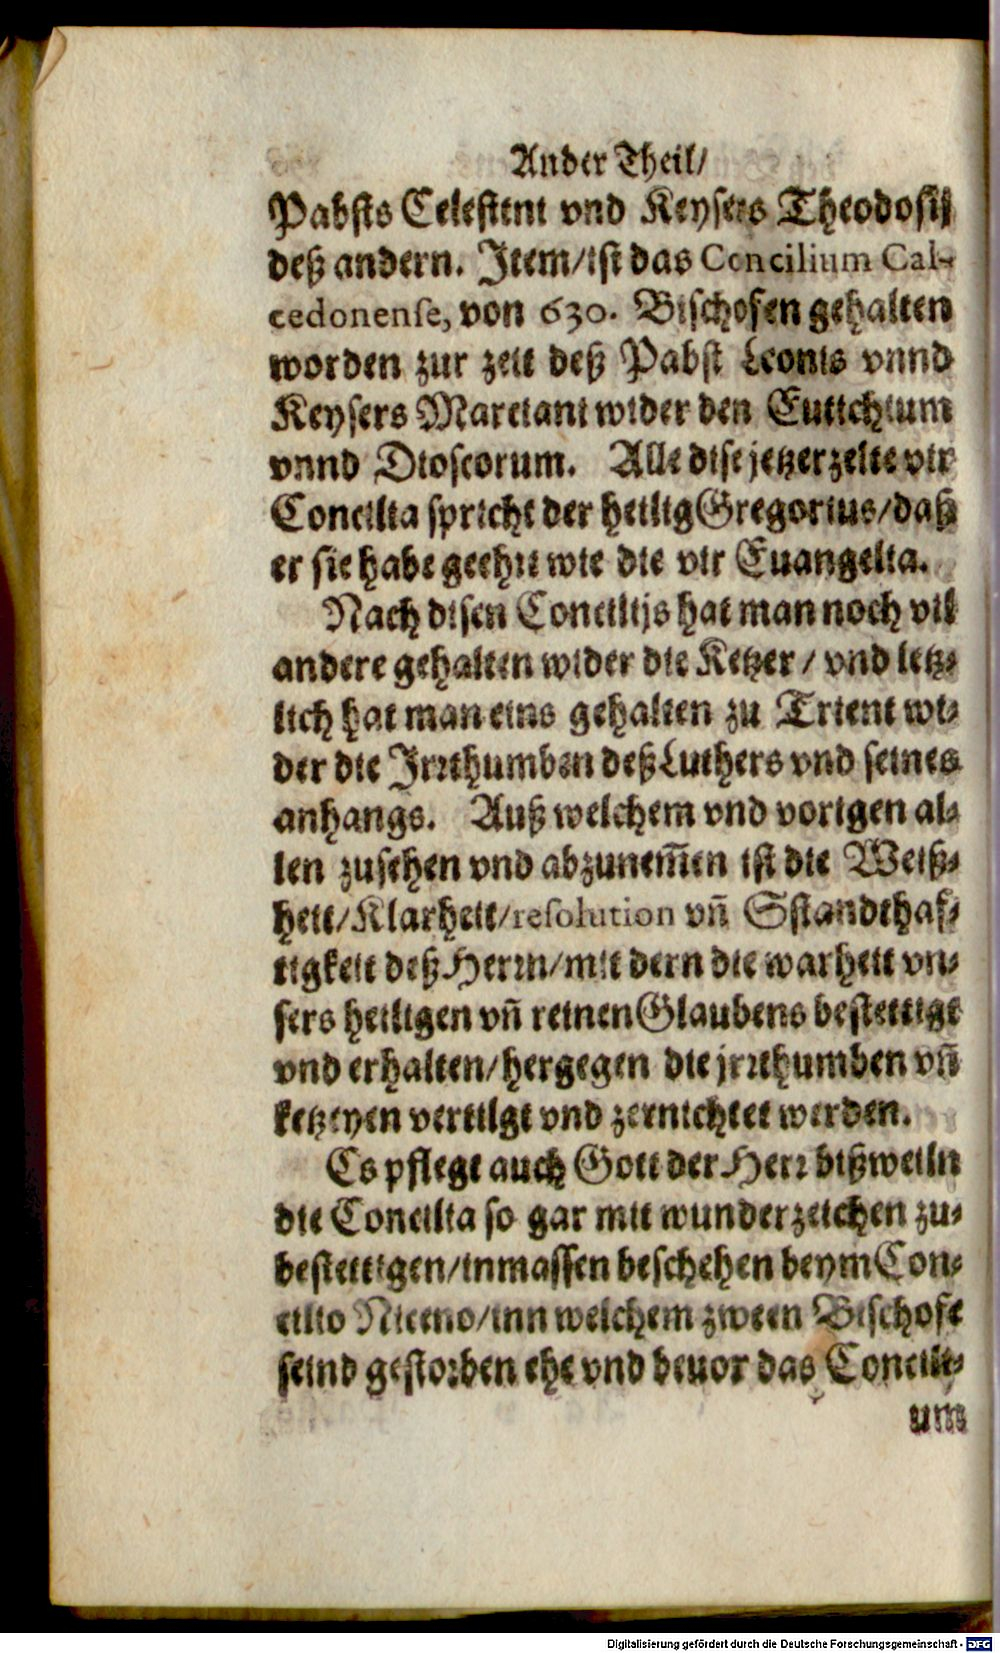 Ander Theil/
Pabsts Celestini vnd Keysers Theodosij
deß andern. Item/ist das Concilium Cal-
cedonense, von 630. Bischofen gehalten
worden zur zeit deß Pabst Leonis vnnd
Keysers Marciani wider den Eutichium
vnnd Dioscorum. Alle dise jetzerzelte vir
Concilia spricht der heilig Gregorius/daß
er sie habe geehrt wie die vir Euangelia.
Nach disen Concilijs hat man noch vil
andere gehalten wider die Ketzer/ vnd letz-
lich hat man eins gehalten zu Trient wi-
der die Irrthumben deß Luthers vnd seines
anhangs. Auß welchem vnd vorigen al-
len zusehen vnd abzunem̄en ist die Weiß-
heit/Klarheit/resolution vn̄ Sstandthaf-
tigkeit deß Herrn/mit dern die warheit vn-
sers heiligen vn̄ reinen Glaubens bestettigt
vnd erhalten/hergegen die jrrthumben vn̄
ketzeyen vertilgt vnd zernichtet werden.
Es pflegt auch Gott der Herr bißweiln
die Concilia so gar mit wunderzeichen zu-
bestettigen/inmassen beschehen beym Con-
cilio Niceno/inn welchem zween Bischofe
seind gestorben ehe vnd beuor das Concili-
um
Digitalisierung gefördert durch die Deutsche Forschungsgemeinschaft - DFG